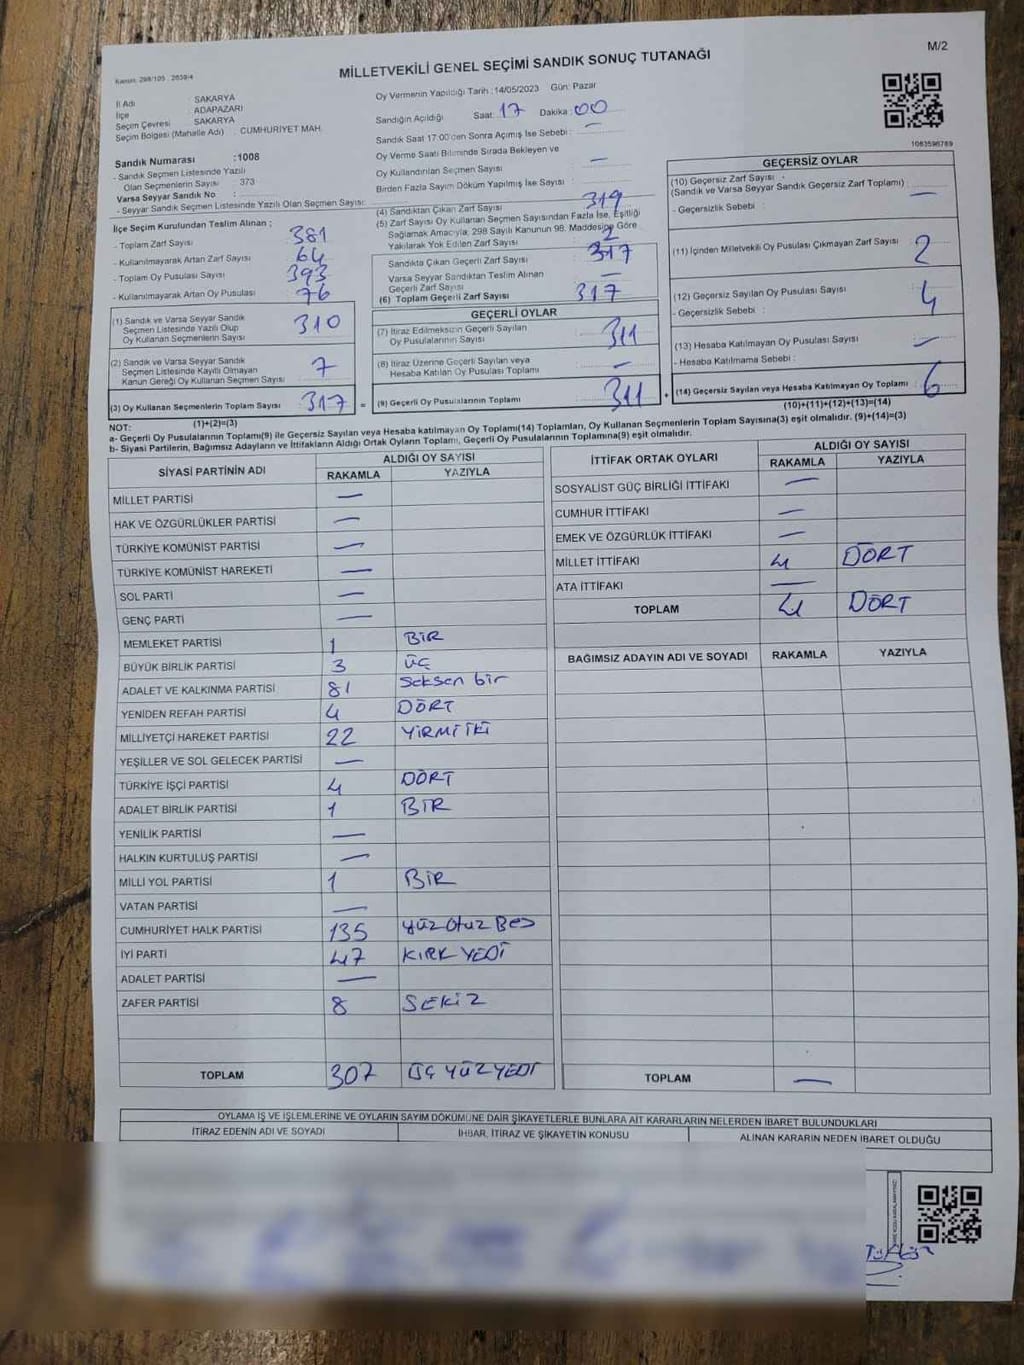 M/2
Kanun: 298/105 , 2839/4
MİLLETVEKİLİ GENEL SEÇİMİ SANDIK SONUÇ TUTANAĞI
İl Adı : SAKARYA
İlçe : ADAPAZARI
Seçim Çevresi : SAKARYA
Seçim Bölgesi (Mahalle Adı) : CUMHURİYET MAH.
Sandık Numarası :1008
- Sandık Seçmen Listesinde Yazılı
Olan Seçmenlerin Sayısı : 373
Varsa Seyyar Sandık No :
- Seyyar Sandık Seçmen Listesinde Yazılı Olan Seçmen Sayısı:
Oy Vermenin Yapıldığı Tarih :14/05/2023 Gün: Pazar
Sandığın Açıldığı Saat: 17 Dakika: 00
Sandık Saat 17:00'den Sonra Açımış İse Sebebi : —
Oy Verme Saati Bitiminde Sırada Bekleyen ve
Oy Kullandırılan Seçmen Sayısı : —
Birden Fazla Sayım Döküm Yapılmış İse Sayısı : —
1083596789
İlçe Seçim Kurulundan Teslim Alınan ;
- Toplam Zarf Sayısı 381
- Kullanılmayarak Artan Zarf Sayısı 64
- Toplam Oy Pusulası Sayısı 393
- Kullanılmayarak Artan Oy Pusulası 76
(1) Sandık ve Varsa Seyyar Sandık
Seçmen Listesinde Yazılı Olup
Oy Kullanan Seçmenlerin Sayısı 310
(2) Sandık ve Varsa Seyyar Sandık
Seçmen Listesinde Kayıtlı Olmayan
Kanun Gereği Oy Kullanan Seçmen Sayısı 7
(3) Oy Kullanan Seçmenlerin Toplam Sayısı 317 =
(1)+(2)=(3)
(4) Sandıktan Çıkan Zarf Sayısı 319
(5) Zarf Sayısı Oy Kullanan Seçmen Sayısından Fazla İse, Eşitliği
Sağlamak Amacıyla; 298 Sayılı Kanunun 98. Maddesine Göre
Yakılarak Yok Edilen Zarf Sayısı : 2
Sandıkta Çıkan Geçerli Zarf Sayısı 317
Varsa Seyyar Sandıktan Teslim Alınan
Geçerli Zarf Sayısı —
(6) Toplam Geçerli Zarf Sayısı 317
GEÇERLİ OYLAR
(7) İtiraz Edilmeksizin Geçerli Sayılan
Oy Pusulalarının Sayısı 311
(8) İtiraz Üzerine Geçerli Sayılan veya
Hesaba Katılan Oy Pusulası Toplamı —
(9) Geçerli Oy Pusulalarının Toplamı 311 +
GEÇERSİZ OYLAR
(10) Geçersiz Zarf Sayısı
(Sandık ve Varsa Seyyar Sandık Geçersiz Zarf Toplamı) : —
- Geçersizlik Sebebi :
(11) İçinden Milletvekili Oy Pusulası Çıkmayan Zarf Sayısı 2
(12) Geçersiz Sayılan Oy Pusulası Sayısı 4
- Geçersizlik Sebebi :
(13) Hesaba Katılmayan Oy Pusulası Sayısı —
- Hesaba Katılmama Sebebi :
(14) Geçersiz Sayılan veya Hesaba Katılmayan Oy Toplamı : 6
(10)+(11)+(12)+(13)=(14)
NOT:
a- Geçerli Oy Pusulalarının Toplamı(9) ile Geçersiz Sayılan veya Hesaba katılmayan Oy Toplamı(14) Toplamları, Oy Kullanan Seçmenlerin Toplam Sayısına(3) eşit olmalıdır. (9)+(14)=(3)
b- Siyasi Partilerin, Bağımsız Adayların ve İttifakların Aldığı Ortak Oyların Toplamı, Geçerli Oy Pusulalarının Toplamına(9) eşit olmalıdır.
SİYASİ PARTİNİN ADI ALDIĞI OY SAYISI
RAKAMLA YAZIYLA
MİLLET PARTİSİ —
HAK VE ÖZGÜRLÜKLER PARTİSİ —
TÜRKİYE KOMÜNİST PARTİSİ —
TÜRKİYE KOMÜNİST HAREKETİ —
SOL PARTİ —
GENÇ PARTİ —
MEMLEKET PARTİSİ 1 BİR
BÜYÜK BİRLİK PARTİSİ 3 üç
ADALET VE KALKINMA PARTİSİ 81 Seksen bir
YENİDEN REFAH PARTİSİ 4 DÖRT
MİLLİYETÇİ HAREKET PARTİSİ 22 YİRMİ İKİ
YEŞİLLER VE SOL GELECEK PARTİSİ —
TÜRKİYE İŞÇİ PARTİSİ 4 DÖRT
ADALET BİRLİK PARTİSİ 1 BİR
YENİLİK PARTİSİ —
HALKIN KURTULUŞ PARTİSİ —
MİLLİ YOL PARTİSİ 1 BİR
VATAN PARTİSİ —
CUMHURİYET HALK PARTİSİ 135 Yüz Otuz Beş
İYİ PARTİ 47 KIRK YEDİ
ADALET PARTİSİ —
ZAFER PARTİSİ 8 SEKİZ
TOPLAM 307 ÜÇ YÜZ YEDİ
İTTİFAK ORTAK OYLARI ALDIĞI OY SAYISI
RAKAMLA YAZIYLA
SOSYALİST GÜÇ BİRLİĞİ İTTİFAKI —
CUMHUR İTTİFAKI —
EMEK VE ÖZGÜRLÜK İTTİFAKI —
MİLLET İTTİFAKI 4 DÖRT
ATA İTTİFAKI —
TOPLAM 4 DÖRT
BAĞIMSIZ ADAYIN ADI VE SOYADI RAKAMLA YAZIYLA
TOPLAM —
OYLAMA İŞ VE İŞLEMLERİNE VE OYLARIN SAYIM DÖKÜMÜNE DAİR ŞİKAYETLERLE BUNLARA AİT KARARLARIN NELERDEN İBARET BULUNDUKLARI
İTİRAZ EDENİN ADI VE SOYADI İHBAR, İTİRAZ VE ŞİKAYETİN KONUSU ALINAN KARARIN NEDEN İBARET OLDUĞU